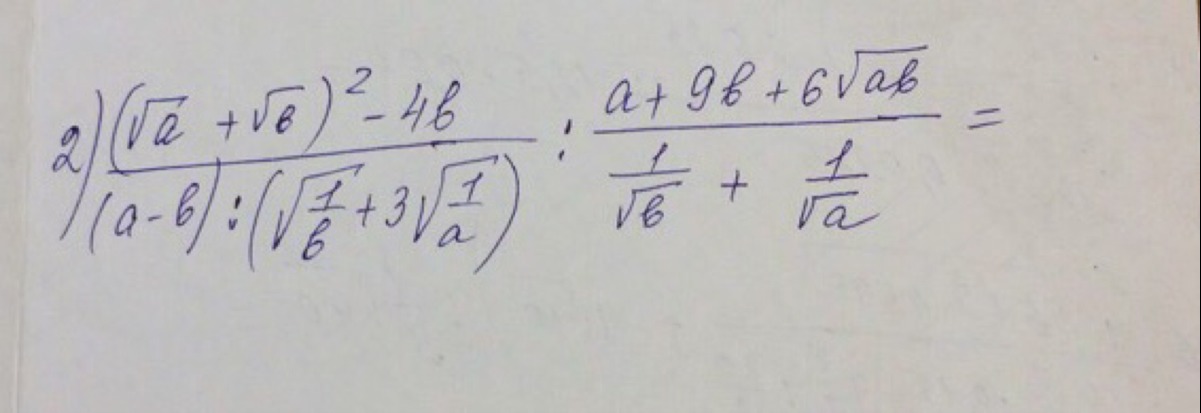 2) ((√a + √b)² - 4b) / ((a - b) : (√(1/b) + 3√(1/a))) : (a + 9b + 6√(ab)) / (1/√b + 1/√a) =